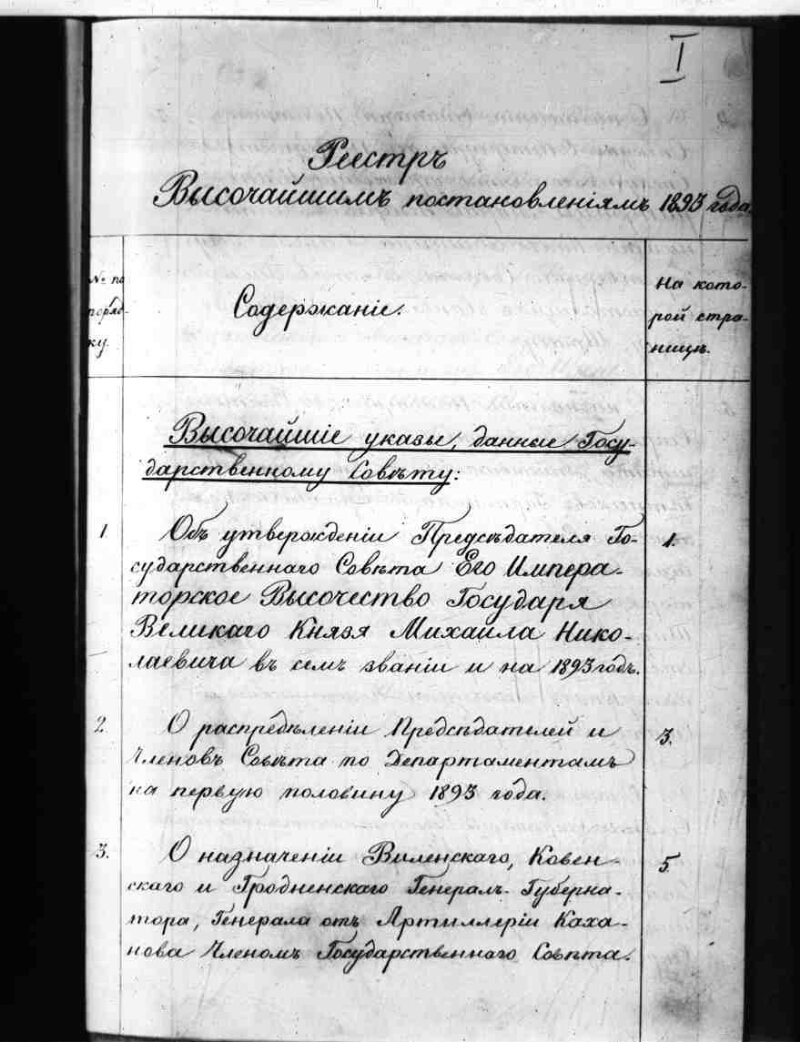 I
Реестръ
Высочайшимъ постановленіямъ 1893 года.
№ по
поряд-
ку.
Содержаніе.
На кото-
рой стра-
ницѣ.
Высочайшіе указы, данные Госу-
дарственному Совѣту:
1. Объ утвержденіи Предсѣдателя Го- 1.
сударственнаго Совѣта Его Импера-
торское Высочество Государя
Великаго Князя Михаила Нико-
лаевича въ семъ званіи и на 1893 годъ.
2. О распредѣленіи Предсѣдателей и 3.
Членовъ Совѣта по Департаментамъ
на первую половину 1893 года.
3. О назначеніи Виленскаго, Ковен- 5.
скаго и Гродненскаго Генералъ-Губерна-
тора, Генерала отъ Артиллеріи Каха-
нова Членомъ Государственнаго Совѣта.